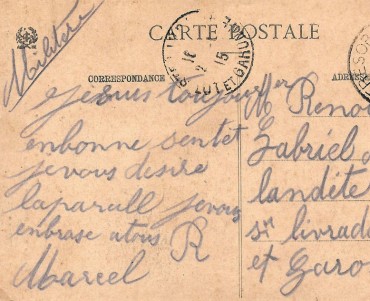 Militaire
CARTE POSTALE
CORRESPONDANCE
ADRESSE
LOT ET GARONNE
16
2
15
ejesuis toujours
enbonne sentet
jevous desire
laparall jevous
enbrase atous R
Marcel
Mr Reno
Gabriel
landète
ste livrade
et Garo